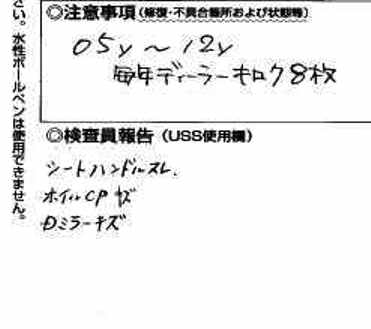 さい。水性ボールペンは使用できません。
◎注意事項(修復・不具合箇所および状態等)
05y〜12y
毎年ディーラーキロク8枚
◎検査員報告(USS使用欄)
シートハンドルスレ.
ホイルCPキズ
Dミラーキズ